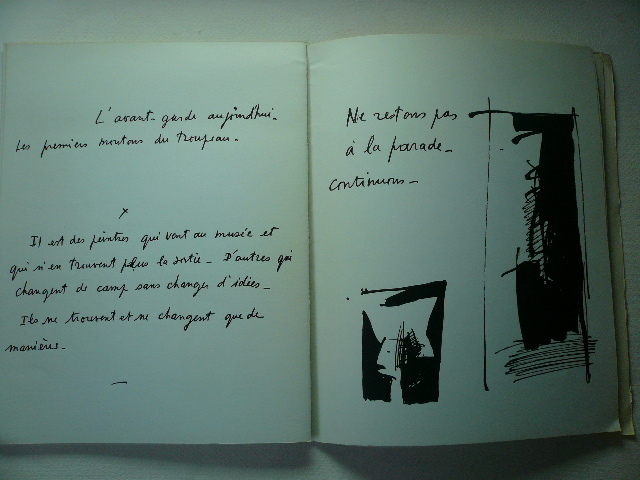 L'avant-garde aujourd'hui.
Les premiers moutons du troupeau.
x
Il est des peintres qui vont au musée et
qui n'en trouvent plus la sortie_ D'autres qui
changent de camp sans changer d'idées_
Ils ne trouvent et ne changent que de
manières_
Ne restons pas
à la parade_
continuons_